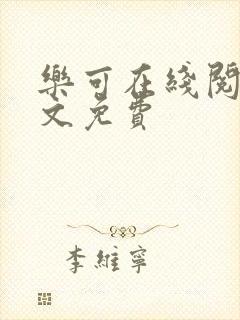 樂可在綫閱
文免費
李維寧